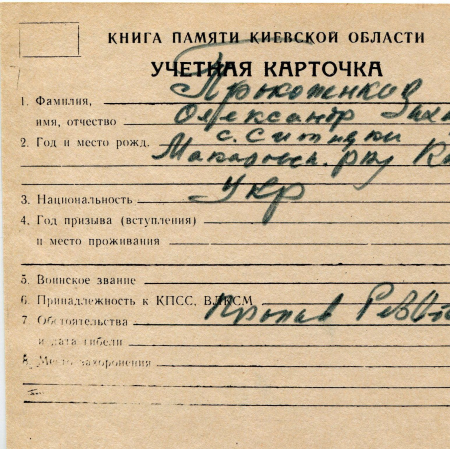 КНИГА ПАМЯТИ КИЕВСКОЙ ОБЛАСТИ
УЧЕТНАЯ КАРТОЧКА
1. Фамилия,
имя, отчество Олександр
2. Год и место рожд. с. Ситняки
Макаровск. р-ну
3. Национальность Укр
4. Год призыва (вступления)
и место проживания
5. Воинское звание
6. Принадлежность к КПСС, ВЛКСМ
7. Обстоятельства Пропав
и дата гибели
8. Место захоронения